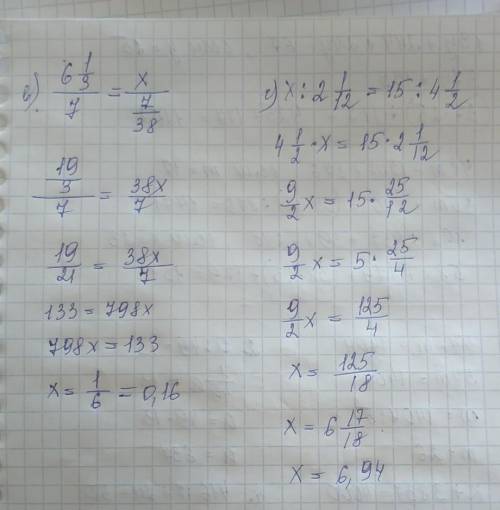 в) 6 1/3 / 7 = x / 7/38
19/3 / 7 = 38x/7
19/21 = 38x/7
133 = 798x
798x = 133
x = 1/6 = 0,16
с) x : 2 1/12 = 15 : 4 1/2
4 1/2 · x = 15 · 2 1/12
9/2 x = 15 · 25/12
9/2 x = 5 · 25/4
9/2 x = 125/4
x = 125/18
x = 6 17/18
x = 6,94